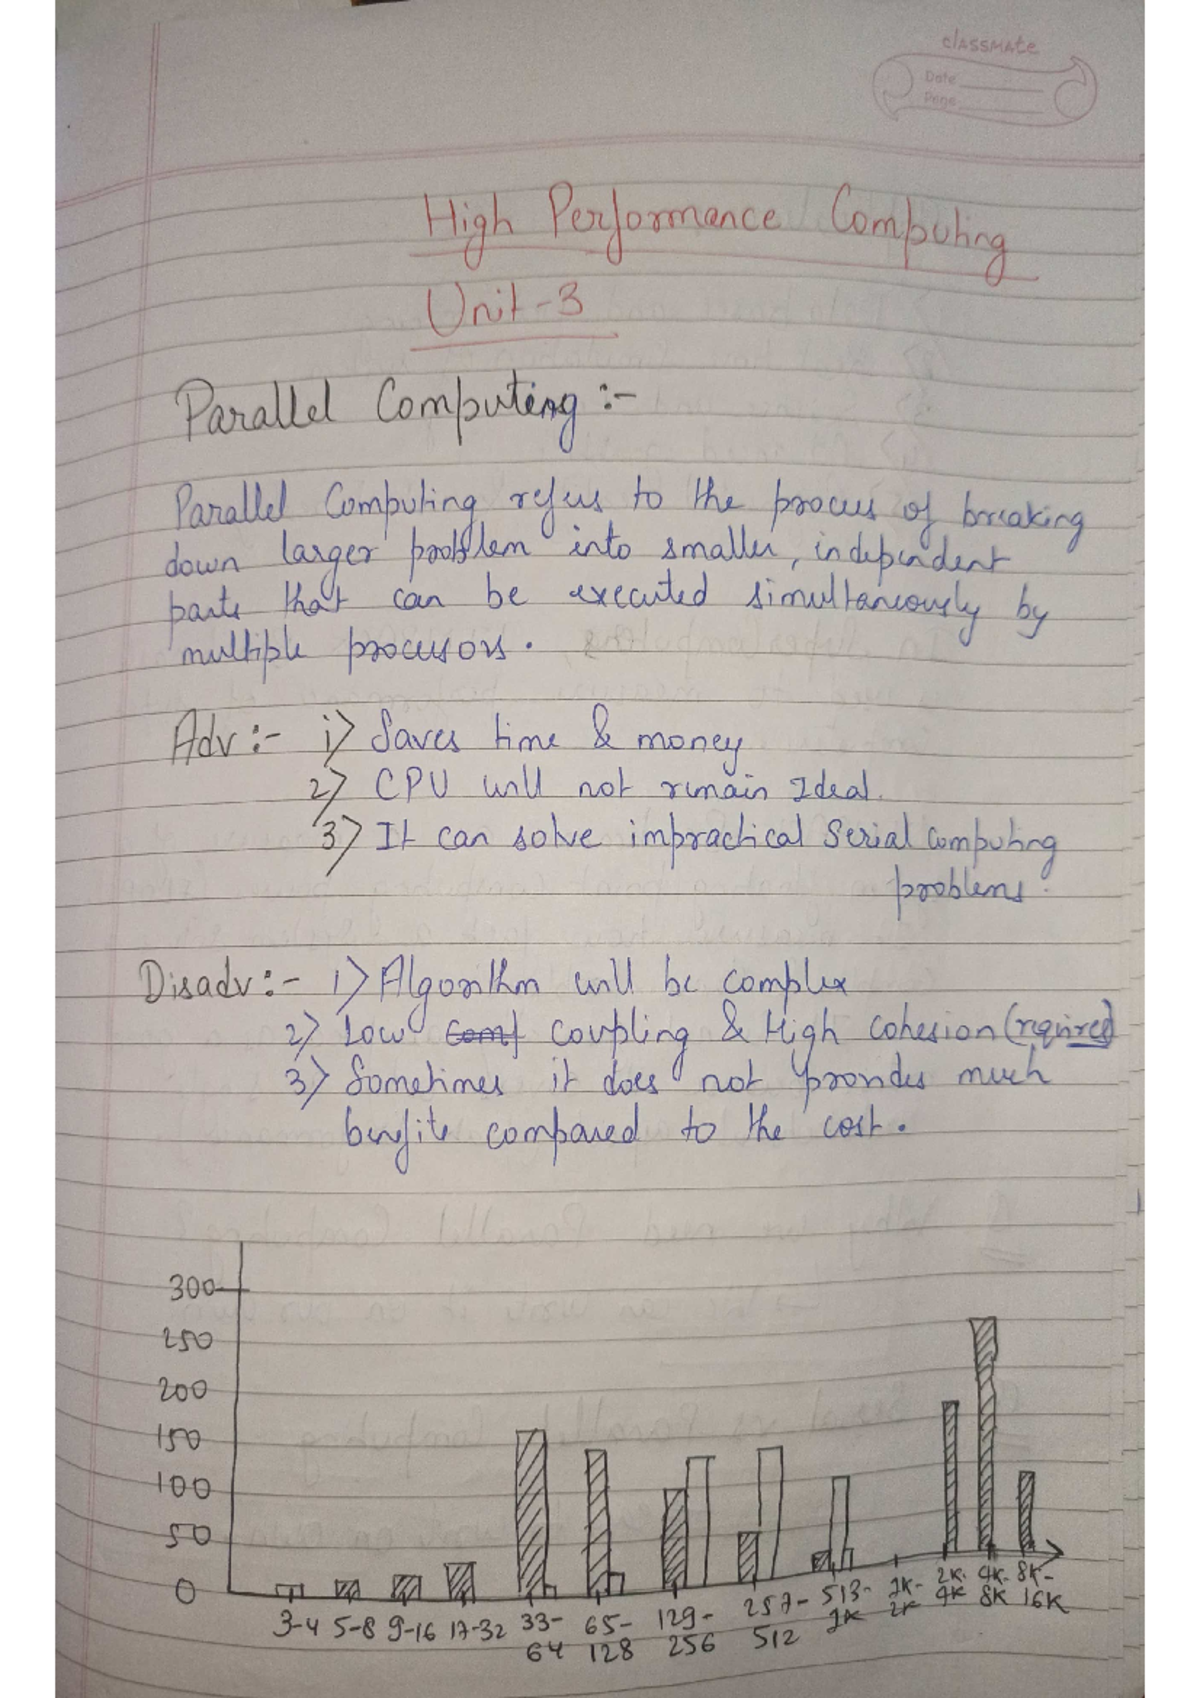 classmate
Date
Page
High Performance Computing
Unit-3
Parallel Computing :-
Parallel Computing refers to the process of breaking
down larger problem into smaller, independent
parts that can be executed simultaneously by
multiple processors.
Adv :- 1) Saves time & money
2) CPU will not remain Ideal.
3) It can solve impractical Serial Computing
problems.
Disadv :- 1) Algorithm will be complex
2) Low coupling & High cohesion (required)
3) Sometimes it does not provides much
benefits compared to the cost.
300
250
200
150
100
50
0
3-4 5-8 9-16 17-32 33-64 65-128 129-256 257-512 513-1K 1K-2K 2K-4K 4K-8K 8K-16K